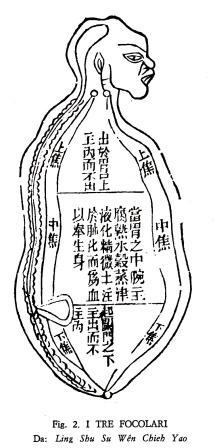 上焦
上焦
出於胃口上
主內而不出
中焦
中焦
當胃之中脘主
腐熟水穀蒸津
液化精微上注
於肺化而為血
以奉生身
下焦
下焦
之下
主出而不
主內
Fig. 2. I TRE FOCOLARI
Da: Ling Shu Su Wên Chieh Yao